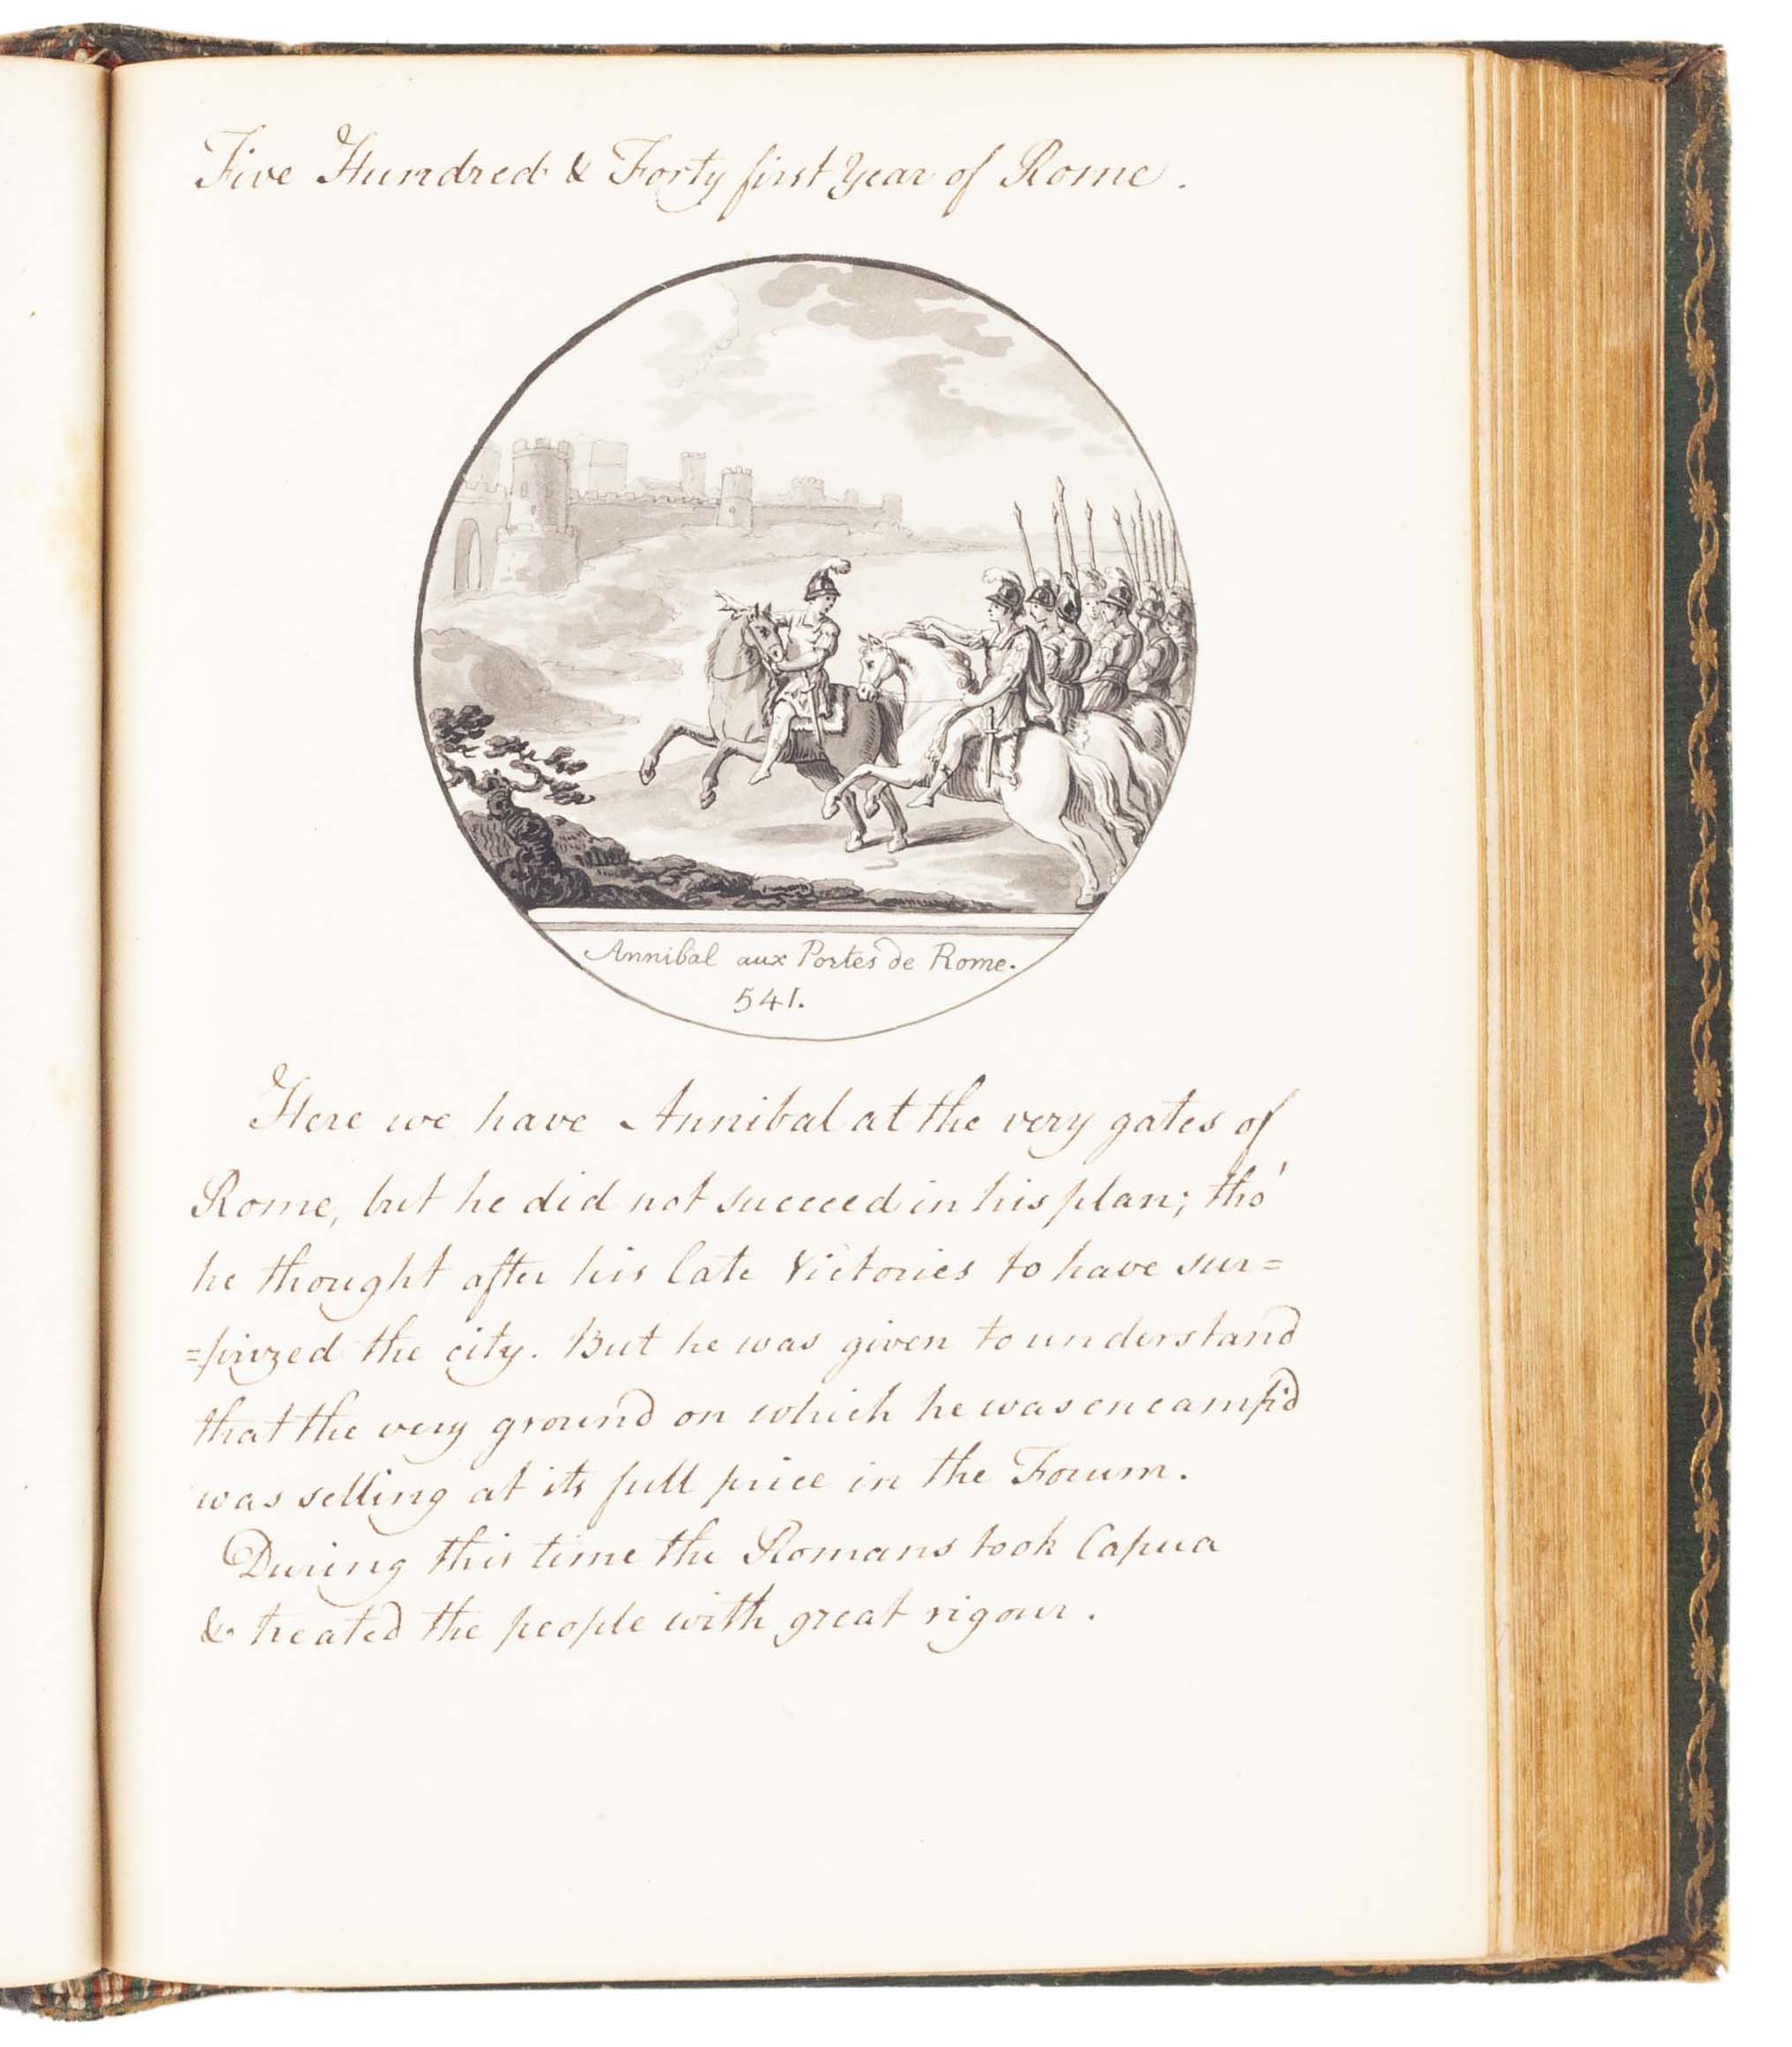 Five Hundred & Forty first Year of Rome.
Annibal aux Portes de Rome.
541.
Here we have Annibal at the very gates of
Rome, but he did not succeed in his plan; tho'
he thought after his late Victories to have sur=
=prized the city. But he was given to understand
that the very ground on which he was encamp'd
was selling at its full price in the Forum.
During this time the Romans took Capua
& treated the people with great rigour.